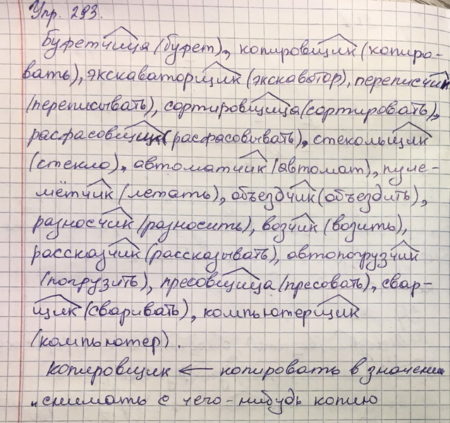 Упр. 293.
буфетчица (буфет), копировщик (копиро-
вать), экскаваторщик (экскаватор), переписчик
(переписывать), сортировщица (сортировать),
расфасовщик (расфасовывать), стекольщик
(стекло), автоматчик (автомат), пуле-
мётчик (летать), объездчик (объездить),
разносчик (разносить), возчик (возить),
рассказчик (рассказывать), автопогрузчик
(погрузить), пресовщица (пресовать), свар-
щик (сваривать), компьютерщик
(компьютер).
Копировщик ← копировать в значении
снимать с чего-нибудь копию